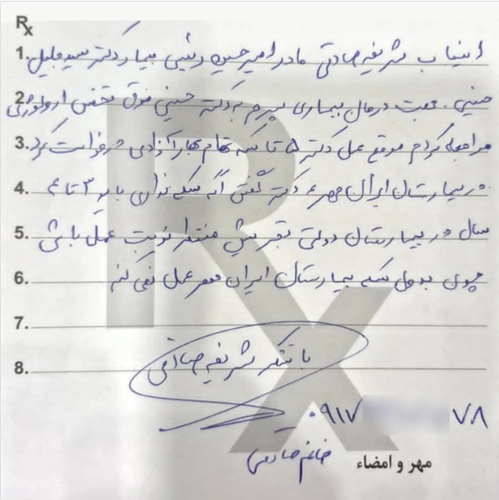 Rx
1. اینجانب شریفه صادقی مادر امیرحسین رئیسی بیمار دکتر سید جلیل
2. حسینی. جهت درمان بیماری پسرم به دکتر حسینی فوق تخصص ارولوژی
3. مراجعه کردم موقع عمل دکتر ۵ تا سکه تمام بهار آزادی درخواست کرد
4. در بیمارستان ایران مهر و دکتر گفتن اگه سکه نداری باید ۳ تا ۴
5. سال در بیمارستان دولتی تجریش منتظر نوبت عمل باشی
6. چون بدون سکه بیمارستان ایران مهر عمل نمی کنه
7.
8. با تشکر شریفه صادقی
۰۹۱۷ ۷۸
خانم صادقی
مهر و امضاء